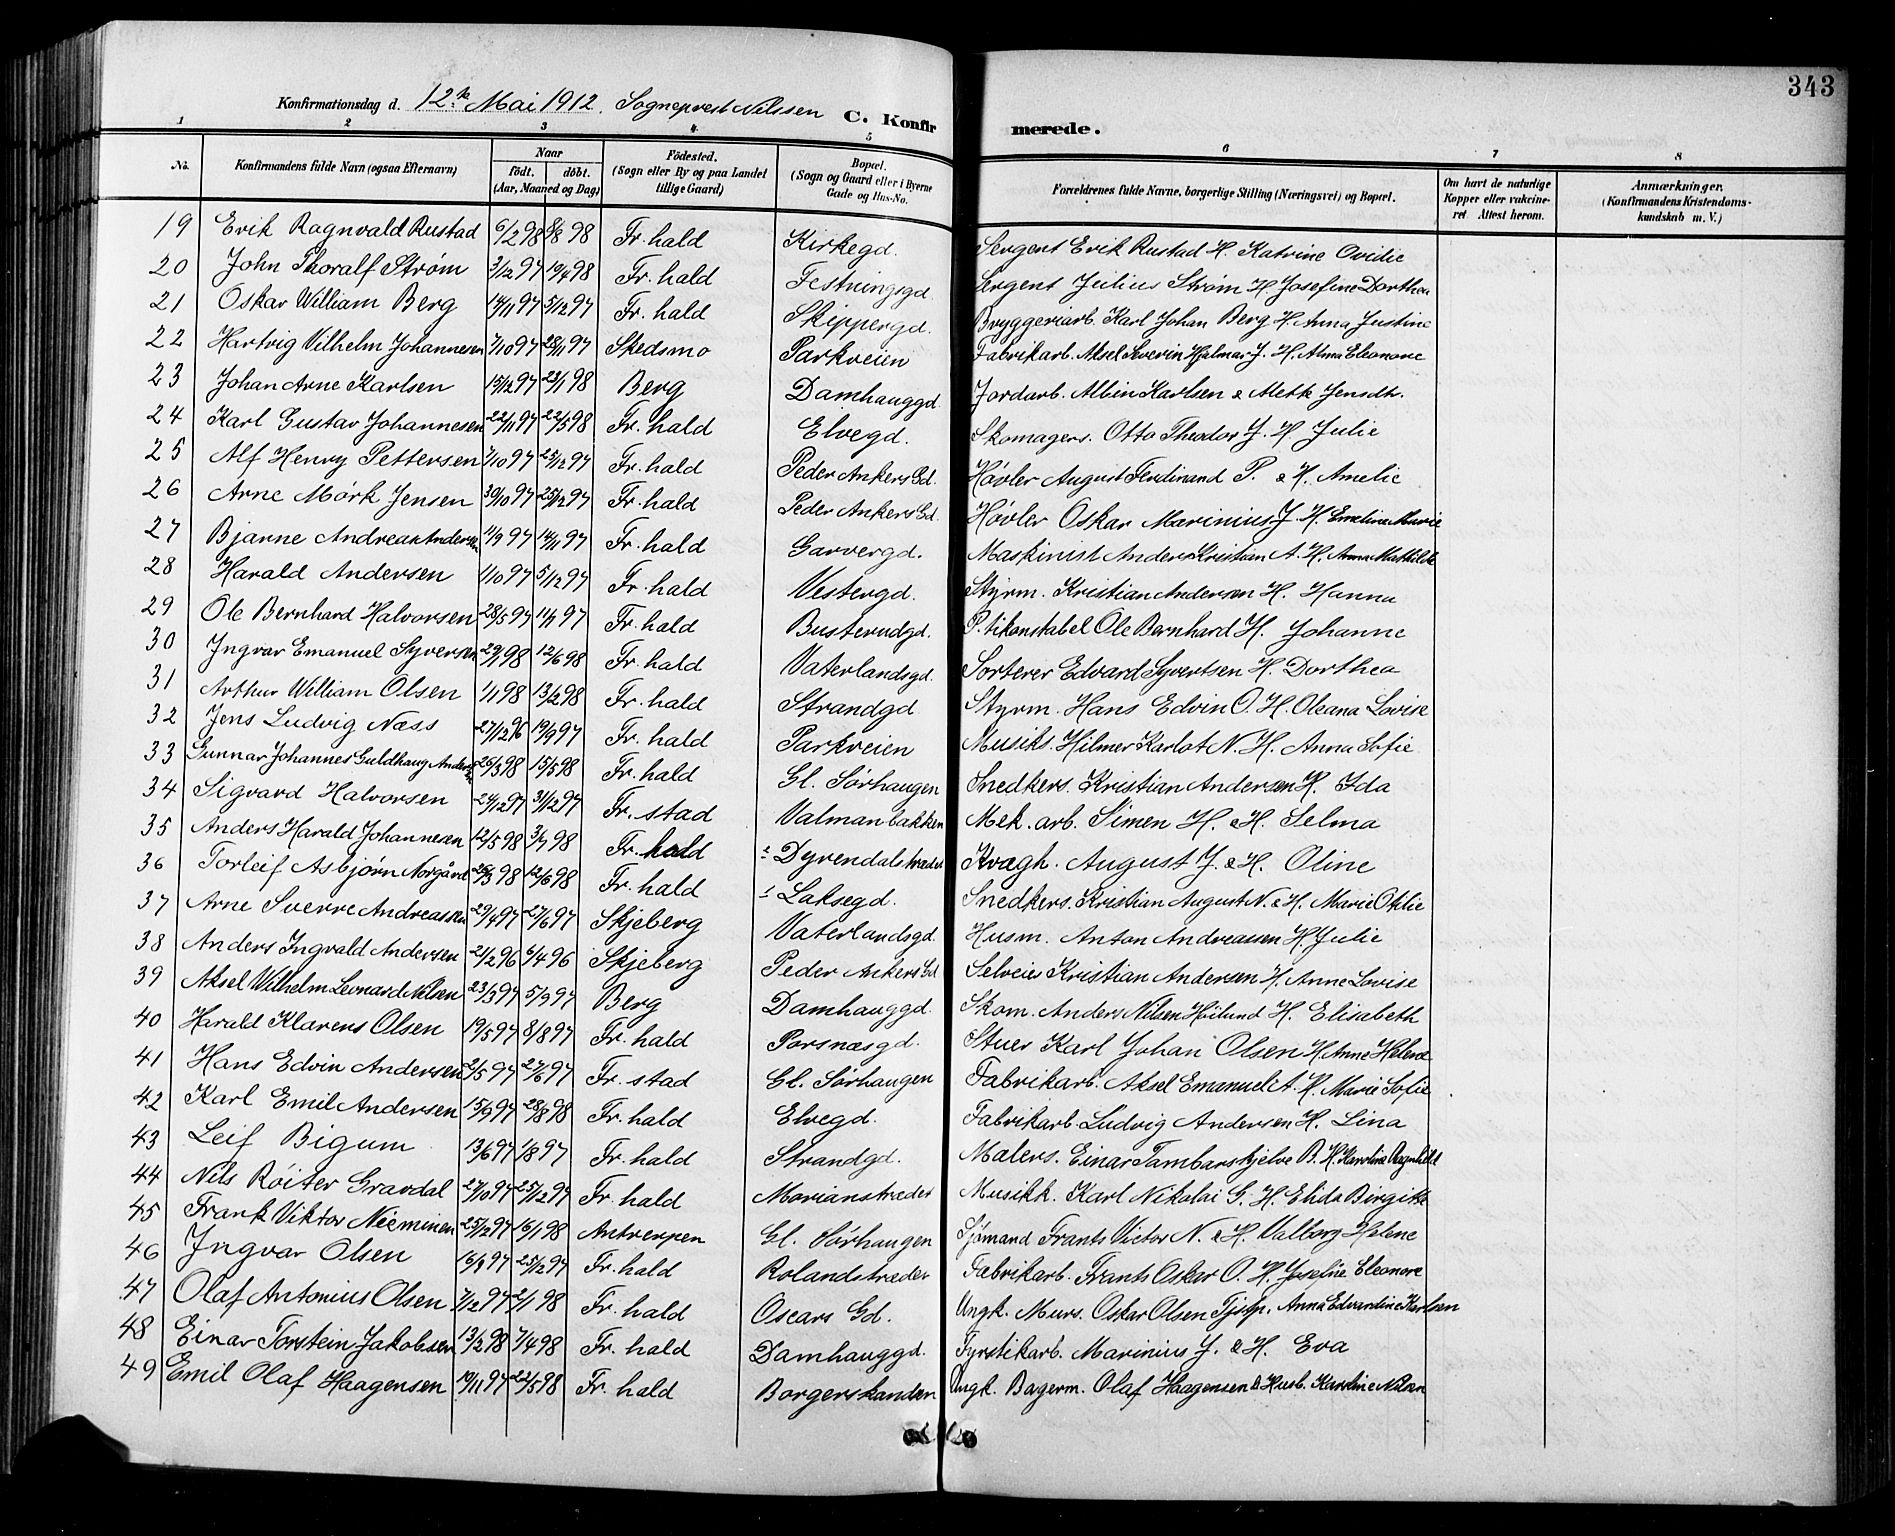 343
Konfirmationsdag d. 12te Mai 1912. Sogneprest Nilssen C. Konfirmerede.
1 2 3 4 5 6 7 8
No. Konfirmandens fulde Navn (ogsaa Efternavn) Naar født. døbt. (Aar, Maaned og Dag) Födested. (Sogn eller By og paa Landet tillige Gaard) Bopæl. (Sogn og Gaard eller i Byerne Gade og Hus-No. Forældrenes fulde Navne, borgerlige Stilling (Næringsvei) og Bopæl. Om havt de naturlige Kopper eller vakcineret. Attest herom. Anmærkninger. (Konfirmandens Kristendomskundskab m. V.)
19 Erik Ragnvald Rustad 6/2 98 9/8 98 Fr.hald Kirkegd. Sergent Erik Rustad H. Katrine Ovidie
20 John Thoralf Strøm 3/12 97 19/4 98 Fr.hald Festningsgd. Sergent Julius Strøm H Josefine Dorthea
21 Oskar William Berg 14/11 97 5/12 97 Fr.hald Skippergd. Bryggeriarb. Karl Johan Berg H. Anna Justine
22 Hartvig Vilhelm Johannesen 7/10 97 28/11 97 Skedsmo Parkveien Fabrikarb. Aksel Severin Hjalmar J. H. Alma Eleonore
23 Johan Arne Karlsen 15/12 97 23/1 98 Berg Damhauggd. Jordarb. Albin Karlsen & Mette Jensdtr.
24 Karl Gustav Johannesen 22/11 97 22/5 98 Fr.hald Elvegd. Skomagers. Otto Theodor J. H Julie
25 Alf Henry Pettersen 7/10 97 25/12 97 Fr.hald Peder Ankers Gd. Høvler August Ferdinand P. & H. Amelie
26 Arne Mørk Jensen 30/10 97 25/12 97 Fr.hald Peder Ankers Gd. Høvler Oskar Marinius J. H. Emeline Marie
27 Bjarne Andreas Andersen 11/9 97 14/11 97 Fr.hald Garvergd. Maskinist Anders Kristian A. H. Anna Mathilde
28 Harald Andersen 1/10 97 5/12 97 Fr.hald Vestergd. Styrm. Kristian Andersen H. Hanna
29 Ole Bernhard Halvorsen 28/5 97 11/7 97 Fr.hald Busterudgd. P.tikonstabel Ole Bernhard H. Johanne
30 Ingvar Emanuel Syversen 29/1 98 12/6 98 Fr.hald Vaterlandsgd. Sorterer Edvard Syvertsen H. Dorthea
31 Arthur William Olsen 1/1 98 13/2 98 Fr.hald Strandgd Styrm. Hans Edvin O. H. Oleana Lovise
32 Jens Ludvig Næss 27/12 96 19/9 97 Fr.hald Parkveien Musiks. Hilmer Karlot N. H. Anna Sofie
33 Gunnar Johannes Guldhaug Andersen 26/3 98 15/5 98 Fr.hald Gl. Sørhaugen Snedkers. Kristian Andersen H. Ida
34 Sigvard Halvorsen 24/12 97 31/12 97 Fr.stad Valmanbakken Mek. arb. Simen H. & H. Selma
35 Anders Harald Johannesen 12/5 98 3/7 98 Fr.hald Dyrendalstrædet Kvægh. August J. & H. Oline
36 Torleif Asbjørn Norgård 26/3 98 12/6 98 Fr.hald Laksegd. Snedkers. Kristian August N. & H. Marie Otilie
37 Arne Sverre Andreassen 29/4 97 27/6 97 Skjeberg Vaterlandsgd. Husm. Anton Andreassen H. Julie
38 Anders Ingvald Andersen 21/2 96 6/4 96 Skjeberg Peder Ankers Gd Selveier Kristian Andersen H. Anne Lovise
39 Aksel Wilhelm Leonard Nilsen 23/3 97 5/9 97 Berg Damhauggd. Skom. Anders Nilsen Høilund H. Elisabeth
40 Harald Klarens Olsen 19/5 97 8/8 97 Fr.hald Porsnæsgd. Stuer Karl Johan Olsen H. Anne Helene
41 Hans Edvin Andersen 2/5 97 27/6 97 Fr.stad Gl. Sørhaugen Fabrikarb. Aksel Emanuel A. H. Marie Sofie
42 Karl Emil Andersen 15/9 97 28/8 98 Fr.hald Elvegd. Fabrikarb. Ludvig Andersen H. Lina
43 Leif Bigum 13/6 97 1/8 97 Fr.hald Strandgd. Malers. Einar Tambarskjelve B. H. Karoline Ragnhild
44 Nils Røiter Gravdal 27/10 97 25/12 97 Fr.hald Marianstrædet Musikk. Karl Nikolai G. H. Elida Birgitte
45 Frank Viktor Nieminen 25/12 97 16/1 98 Antverpen Gl. Sørhaugen Sjømand Frants Victor N. & H. Valborg Helene
46 Ingvar Olsen 16/9 97 25/12 97 Fr.hald Rolandstrædet Fabrikarb. Frants Oskar O. H. Josefine Eleonore
47 Olaf Antonius Olsen 7/12 97 2/1 98 Fr.hald Oscars Gd. Ungk. Murs. Oskar Olsen Tjpp. Anna Edvardine Karlsen
48 Einar Torstein Jakobsen 13/2 98 7/4 98 Fr.hald Damhauggd. Fyrstikarb. Marinius J. & H. Eva
49 Emil Olaf Haagensen 19/11 97 22/5 98 Fr.hald Borgerskansen Ungk. Bagerm. Olaf Haagensen & Husb. Karoline Nilsen